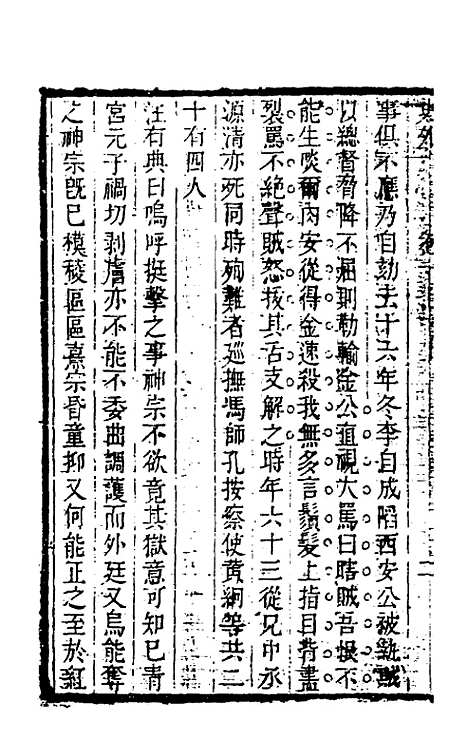 史外
事俱不應乃自劾去十六年冬李自成陷西安公被執賊
以總督脅降不屈則勒輸金公直視大罵曰瞎賊吾恨不
能生啖爾肉安從得金速殺我無多言鬚髮上指目眥盡
裂罵不絕聲賊怒拔其舌支解之時年六十三從兄中丞
源清亦死同時殉難者巡撫馮師孔按察使黃絅等共二
十有四人
汪有典曰嗚呼挺擊之事神宗不欲竟其獄意可知已青
宮元子禍切剥膚亦不能不委曲調護而外廷又烏能奪
之神宗既已模稜區區熹宗昏童抑又何能正之至於紅